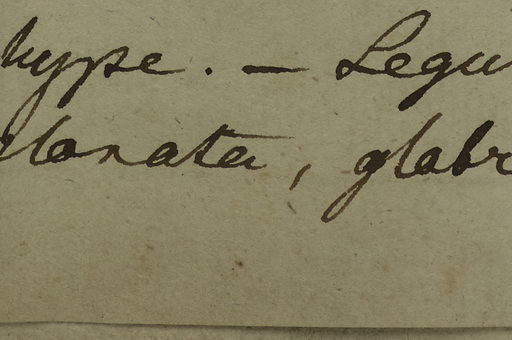 hype. — Legu
clonata, glabr